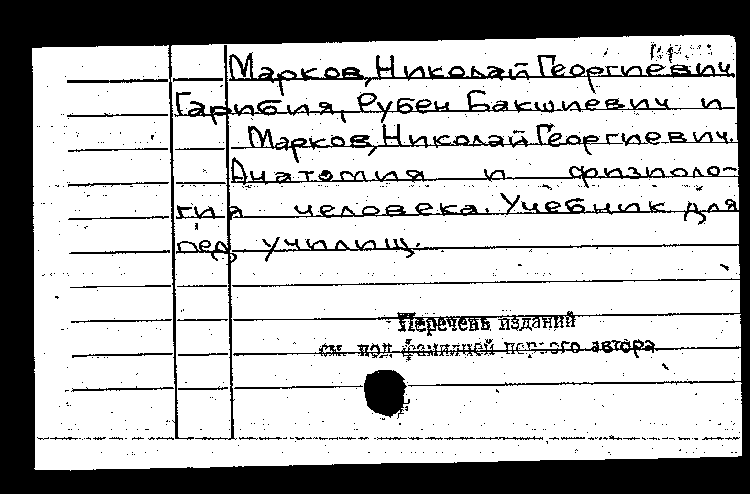 Марков, Николай Георгиевич.
Гарибия, Рубен Бакшиевич и
Марков, Николай Георгиевич.
Анатомия и физиоло-
гия человека. Учебник для
пед. училищ.
Перечень изданий
см. под фамилией первого автора